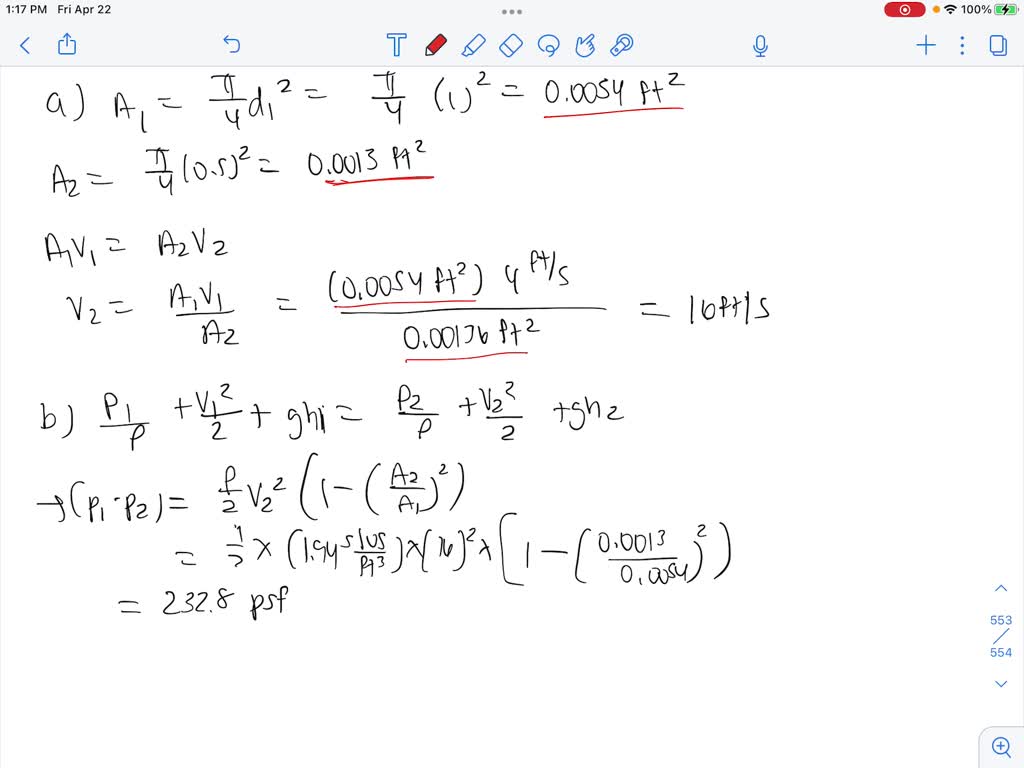 1:17 PM Fri Apr 22
100%
a) A₁ = π/4 d₁² = π/4 (1)² = 0.0054 ft²
A₂ = π/4 (0.5)² = 0.0013 ft²
A₁V₁ = A₂V₂
V₂ = A₁V₁/A₂ = (0.0054 ft²) 4 ft/s / 0.00136 ft² = 16 ft/s
b) P₁/ρ + V₁²/2 + gh₁ = P₂/ρ + V₂²/2 + gh₂
→ (P₁-P₂) = ρ/2 V₂² (1 - (A₂/A₁)²)
= 1/2 × (1.94 slugs/ft³) × (16)² × [1 - (0.0013/0.0054)²)
= 232.8 psf
553
554